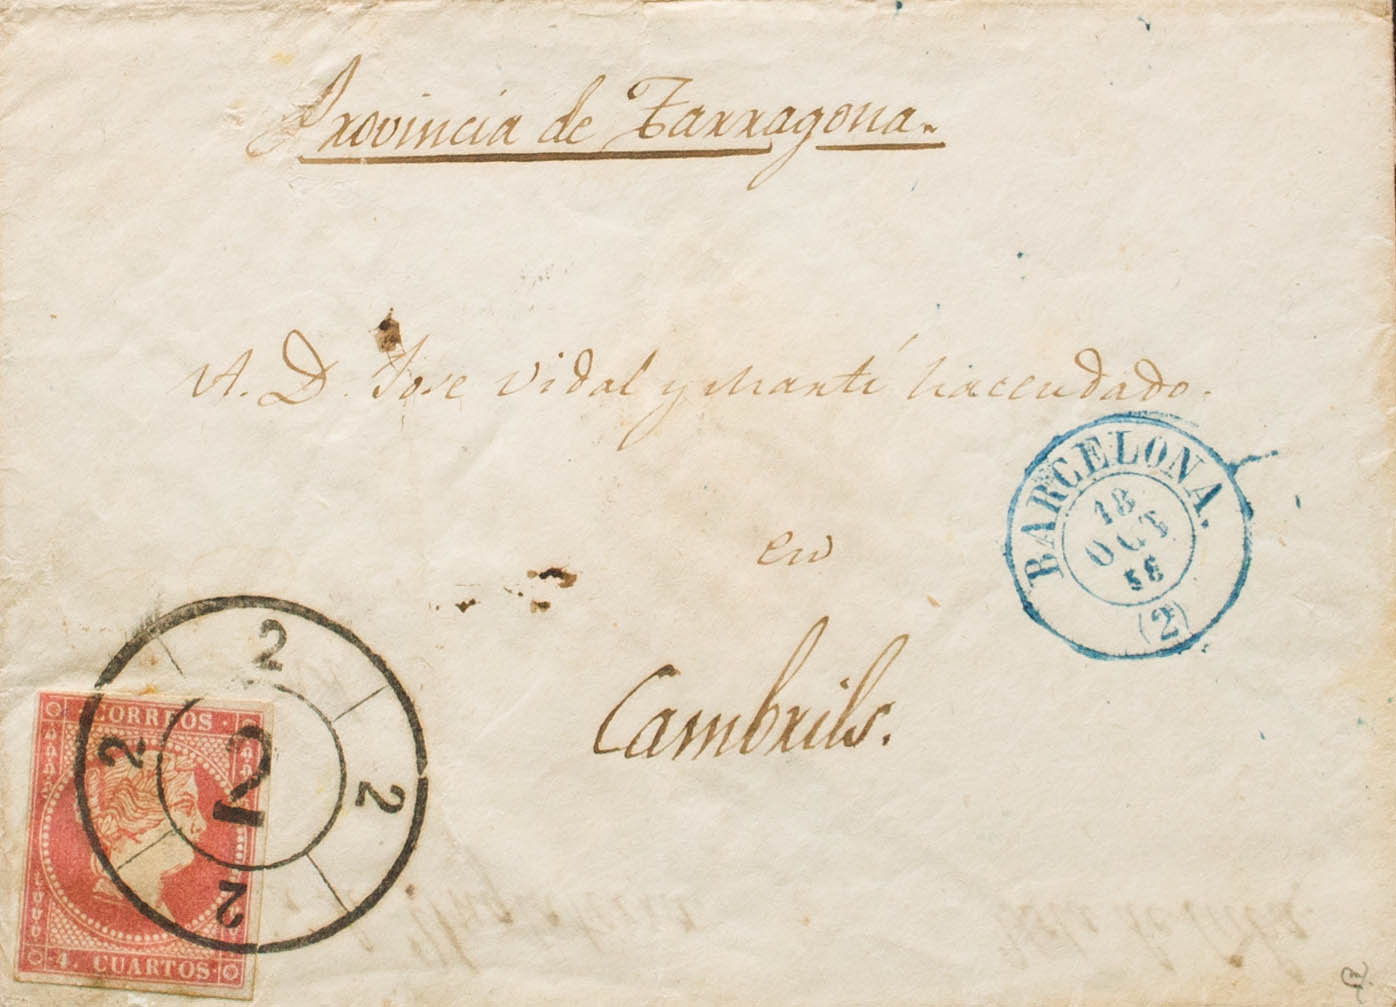 Provincia de Tarragona.
A. D. Jose Vidal y Martí hacendado.
BARCELONA.
18
OCT
(2)
en
Cambrils.
2
2
2
2
2
CORREOS
4. CUARTOS